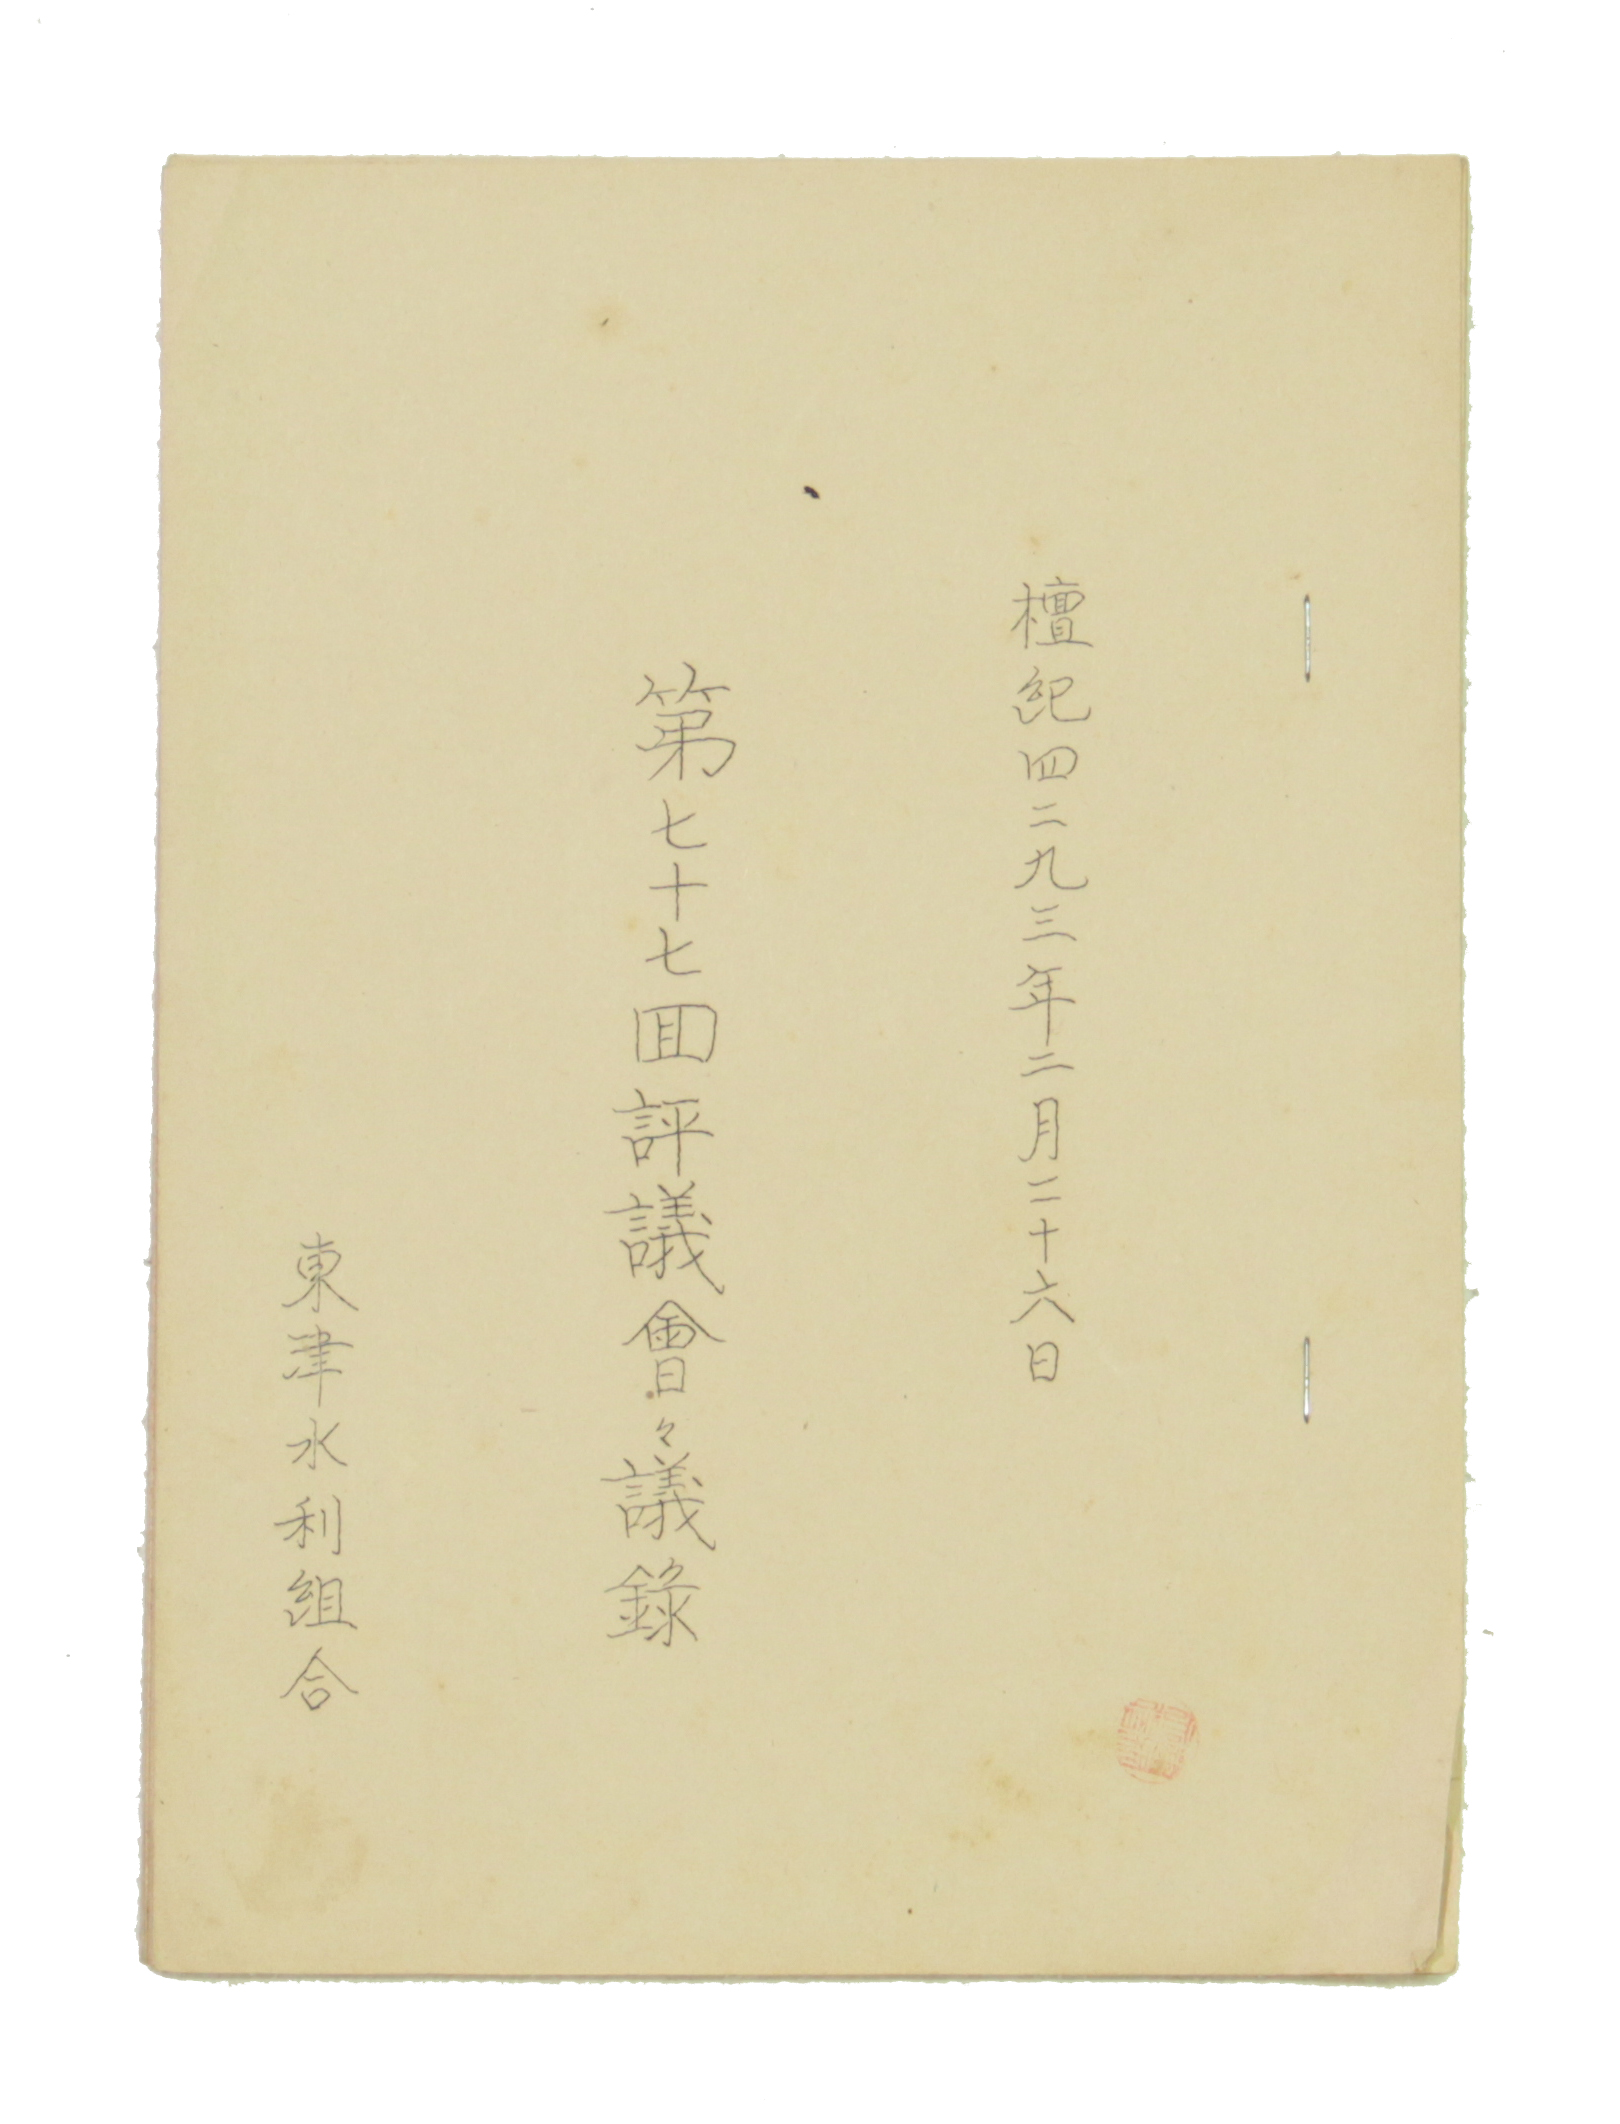 檀紀四二九三年二月二十六日
第七十七回評議會々議錄
東津水利組合